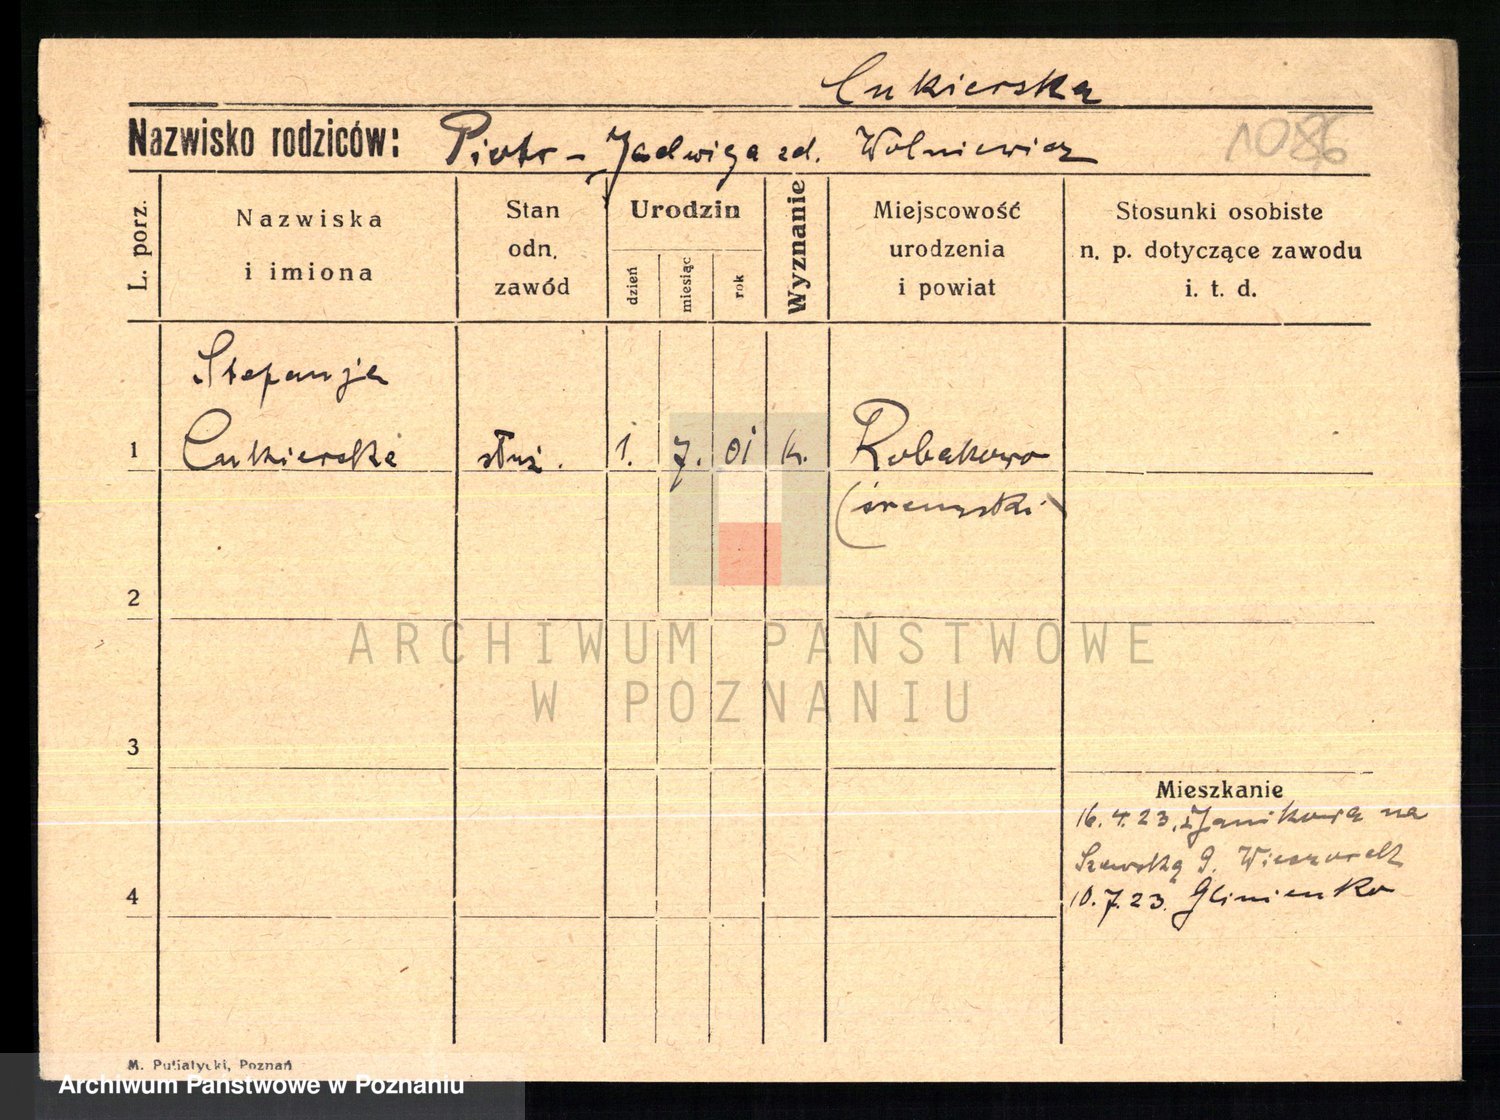 Cukierska
Nazwisko rodziców: Piotr - Jadwiga zd. Wolniewicz
1086
L. porz.
Nazwiska
i imiona
Stan
odn.
zawód
Urodzin
dzień
miesiąc
rok
Wyznanie
Miejscowość
urodzenia
i powiat
Stosunki osobiste
n. p. dotyczące zawodu
i. t. d.
Stefanja
1 Cukierska służ. 1. 7. 01 k. Robakowo
(śremski)
2
ARCHIWUM PAŃSTWOWE
W POZNANIU
3
Mieszkanie
16.4.23. z Janikowa na
Szewską 9.
4
10.7.23. Glinienko
M. Putiatycki, Poznań
Archiwum Państwowe w Poznaniu